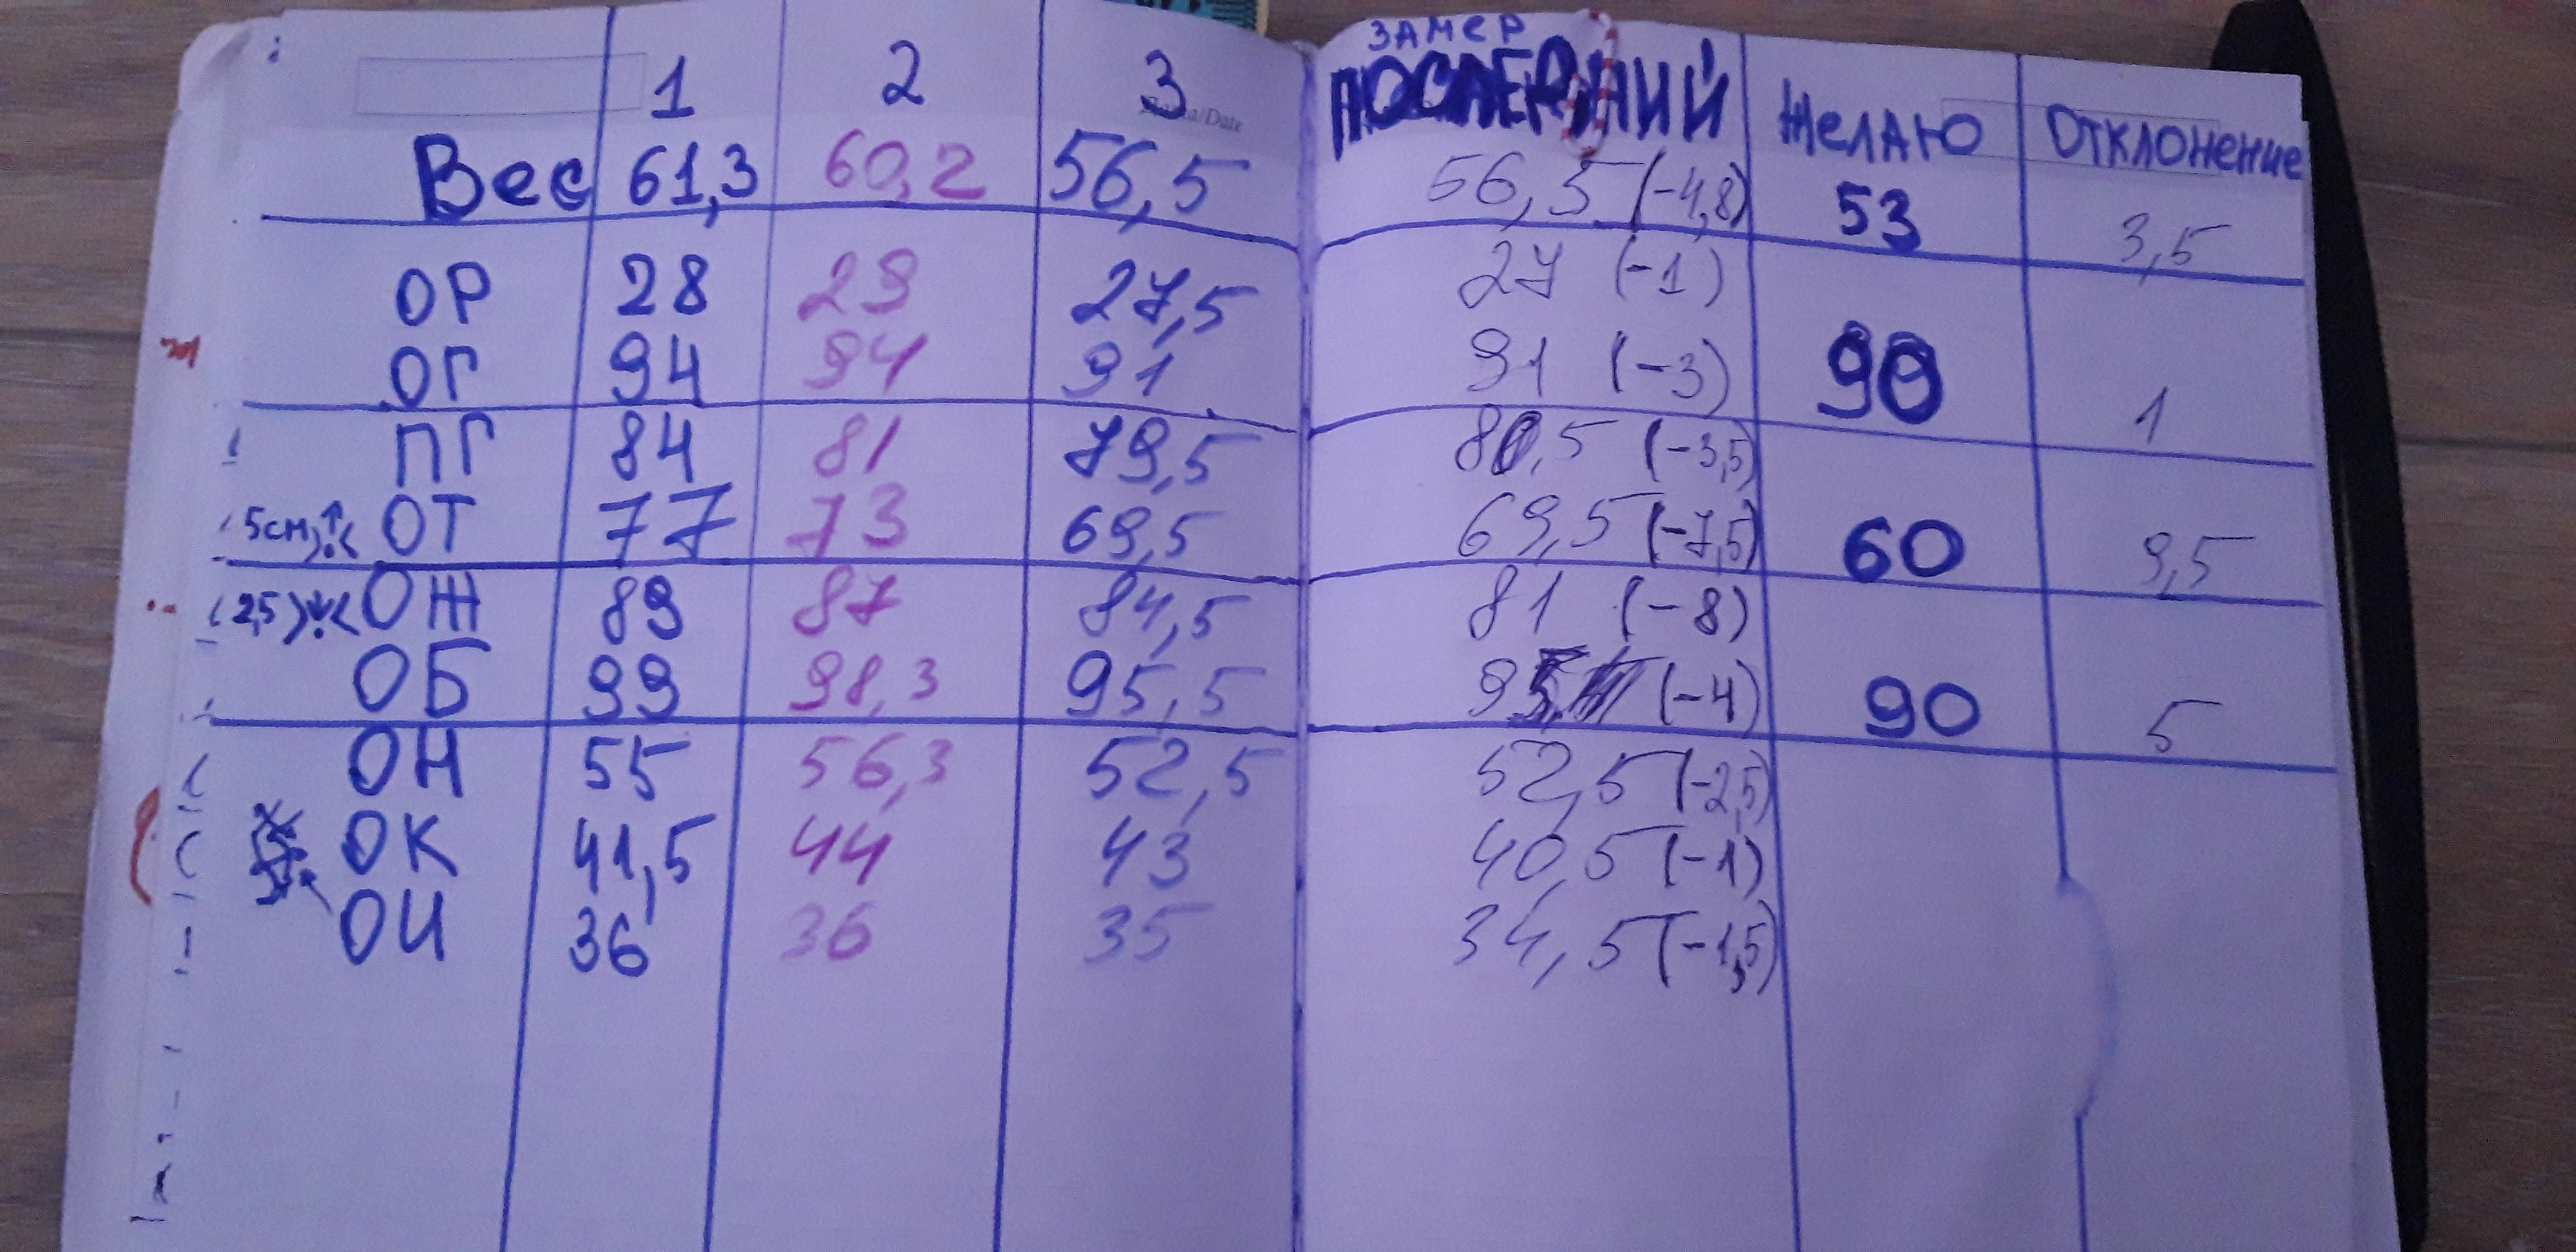 1 2 3 ЗАМЕР ПОСЛЕДНИЙ Желаю Отклонение
Вес 61,3 60,2 56,5 56,5 (-4,8) 53 3,5
ОР 28 29 27,5 27 (-1)
ОГ 94 94 91 91 (-3) 90 1
ПГ 84 81 79,5 80,5 (-3,5)
(5см)↑ ОТ 77 73 69,5 69,5 (-7,5) 60 9,5
(2,5)↓ ОЖ 89 87 84,5 81 (-8)
ОБ 99 98,3 95,5 95 (-4) 90 5
ОН 55 56,3 52,5 52,5 (-2,5)
ОК 41,5 44 43 40,5 (-1)
ОИ 36 36 35 34,5 (-1,5)